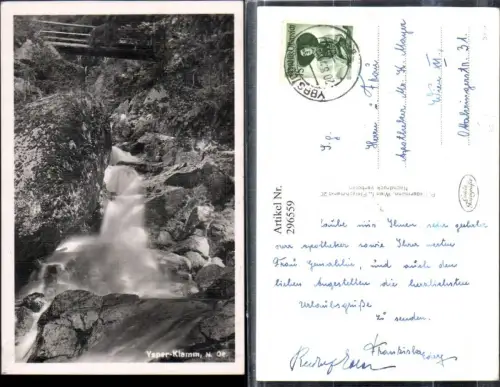 Ysper-Klamm, N. Oe.
YBBS
S. g.
Herrn u. Frau
Apotheker Mr. K. Mayer
Wien
Ottakringerstr. 31.
Artikel Nr.
296559
Erlaube mir Ihnen sehr geehrter
Herr Apotheker sowie Ihrer werten
Frau Gemahlin, und auch den
lieben Angestellten die herzlichsten
Urlaubsgrüße
zu senden.